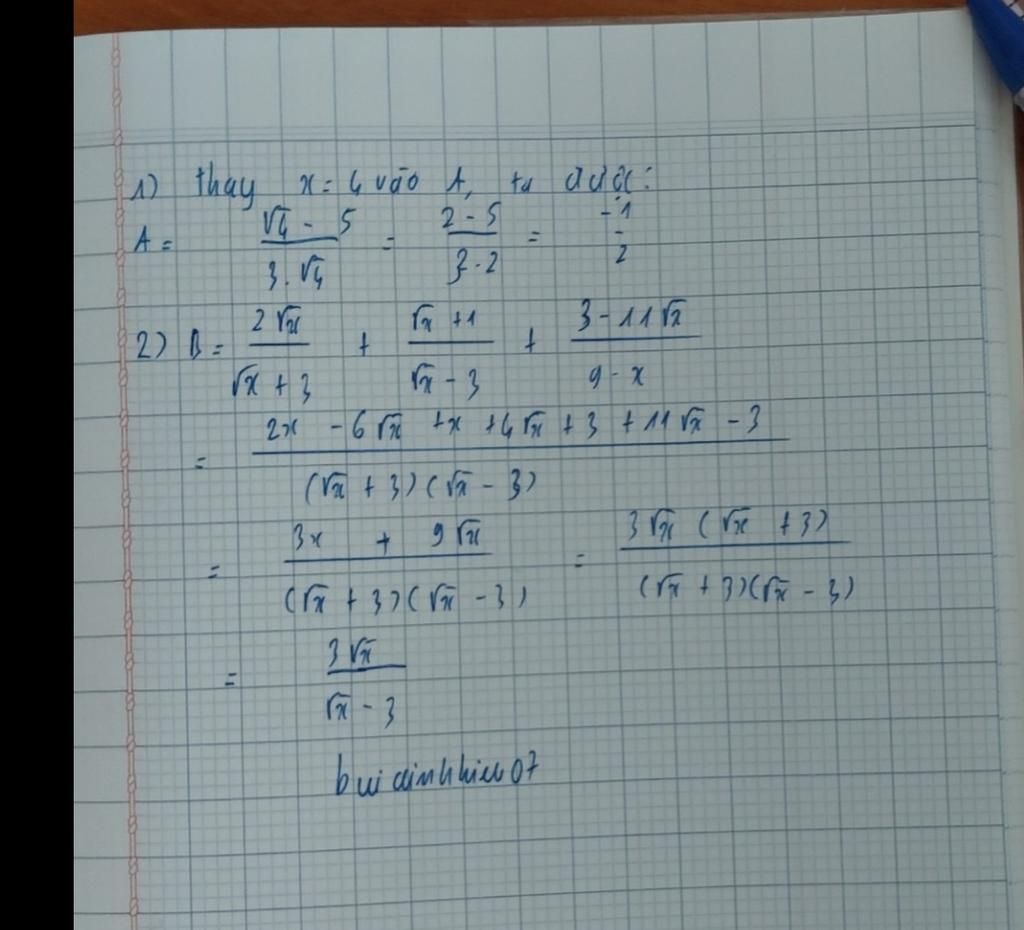 1) thay x = 4 vào A, ta được:
A = (√4 - 5)/(3.√4) = (2 - 5)/(3.2) = -1/2
2) B = 2√x/(√x + 3) + (√x + 1)/(√x - 3) + (3 - 11√x)/(9 - x)
= (2x - 6√x + x + 4√x + 3 + 11√x - 3)/((√x + 3)(√x - 3))
= (3x + 9√x)/((√x + 3)(√x - 3)) = 3√x(√x + 3)/((√x + 3)(√x - 3))
= 3√x/(√x - 3)
buidinhhieu07